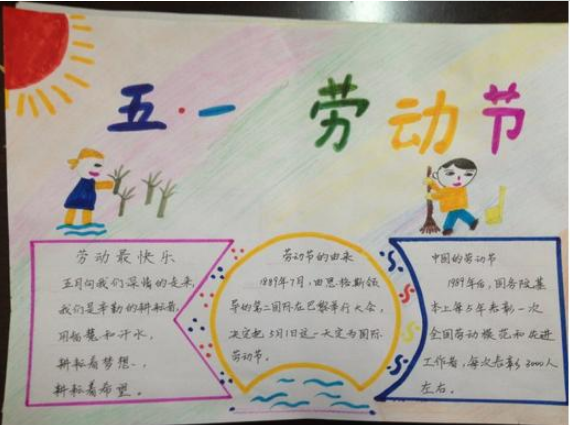 五·一 劳动节
劳动最快乐
五月向我们深情的走来,
我们是辛勤的耕耘者,
用智慧和汗水,
耕耘着梦想、,
耕耘着希望。
劳动节的由来
1889年7月,由恩格斯领
导的第二国际在巴黎举行大会,
决定把5月1日这一天定为国际
劳动节。
中国的劳动节
1989年后,国务院基
本上每5年表彰一次
全国劳动模范和先进
工作者,每次表彰3000人
左右。